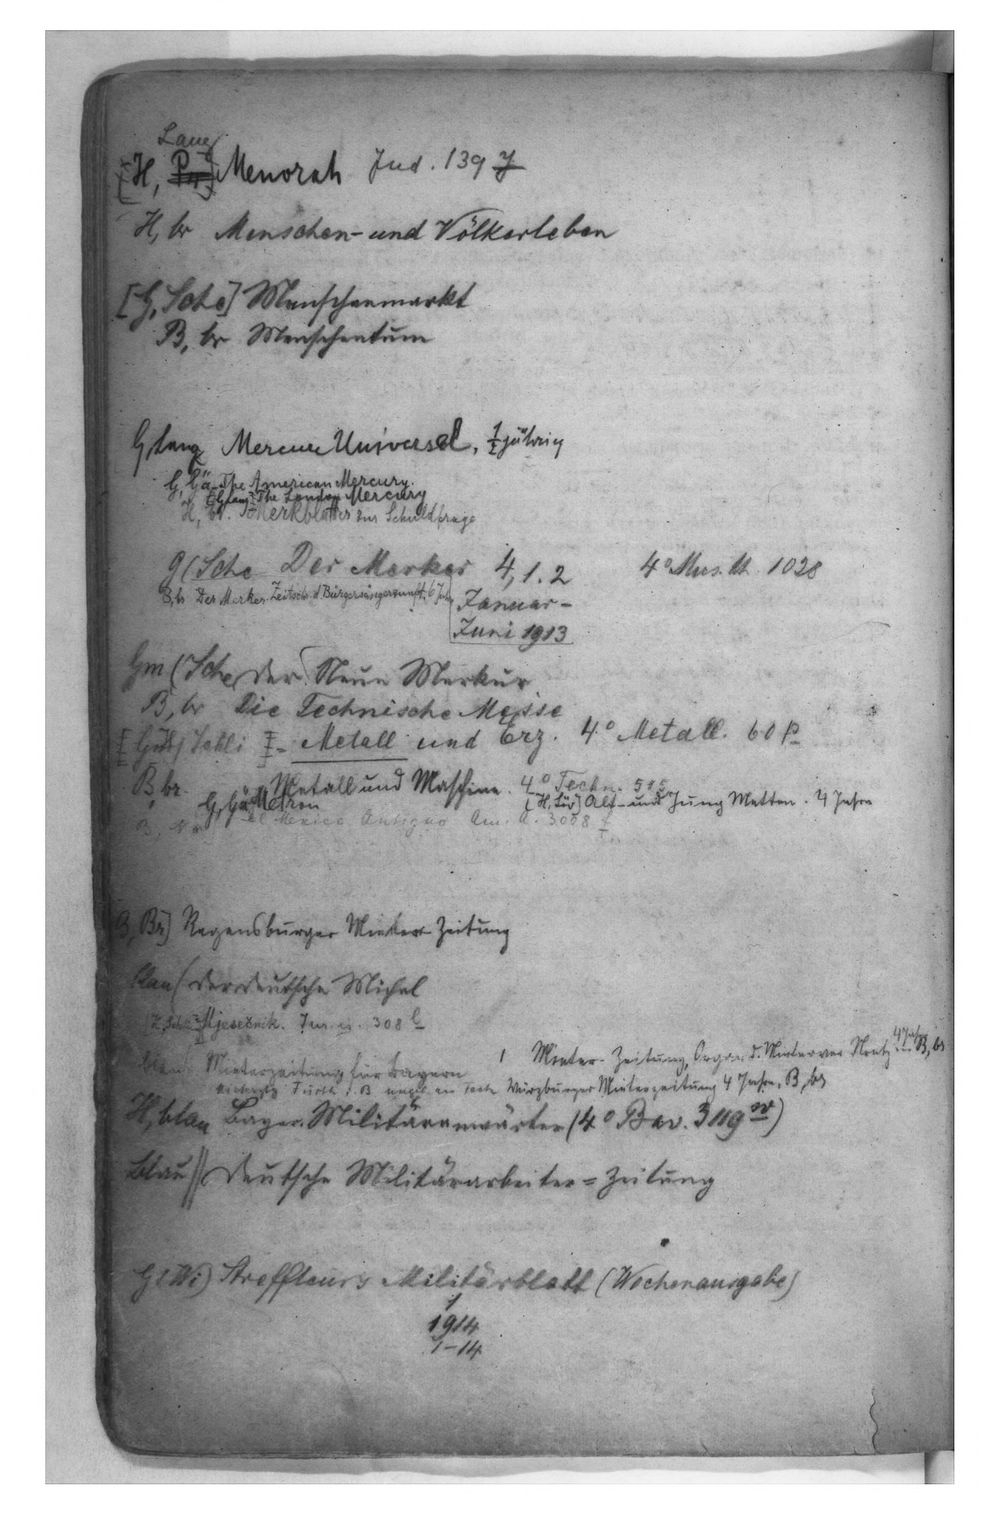 Lang
[H, Menorah Jud. 139 J
H, br Menschen- und Völkerleben
[G, Sche] Menschenmarkt
B, br Menschentum
G Lang Mercure Universel, jährig
G, Gä The American Mercury.
The London Mercury
H, br. Merkblätter zur Schuldfrage
G (Sche Der Merker 4, 1. 2 4° Mus. th. 1028
B, br Der Merker. Zeitsch. d.
Januar-
Juni 1913
Gm (Sche Der Neue Merkur
B, br Die Technische Messe
Metall und Erz. 4° Metall. 60 p
B, br. Metall und Maschine. 4° Techn.
G, Gä Metron Alt- und Jung Metten. 4 Jahre
El Mexico Antiguo Am. A. 3008 f
B, Br] Regensburger Mieter Zeitung
blau (Der deutsche Michel
Mjesečnik. Jur. is. 308 l
Mieter-Zeitung, Organ d. 4 Jahre B, br
blau Mieterzeitung für Bayern
Fürth i. B Würzburger Mieterzeitung 4 Jahre, B, br
H, blau Bayer. Militäranwärter (4° Bav. 3119 w)
blau (Deutsche Militärarbeiter=Zeitung
G (Wi) Streffleurs Militärblatt (Wochenausgabe)
1914
1-14